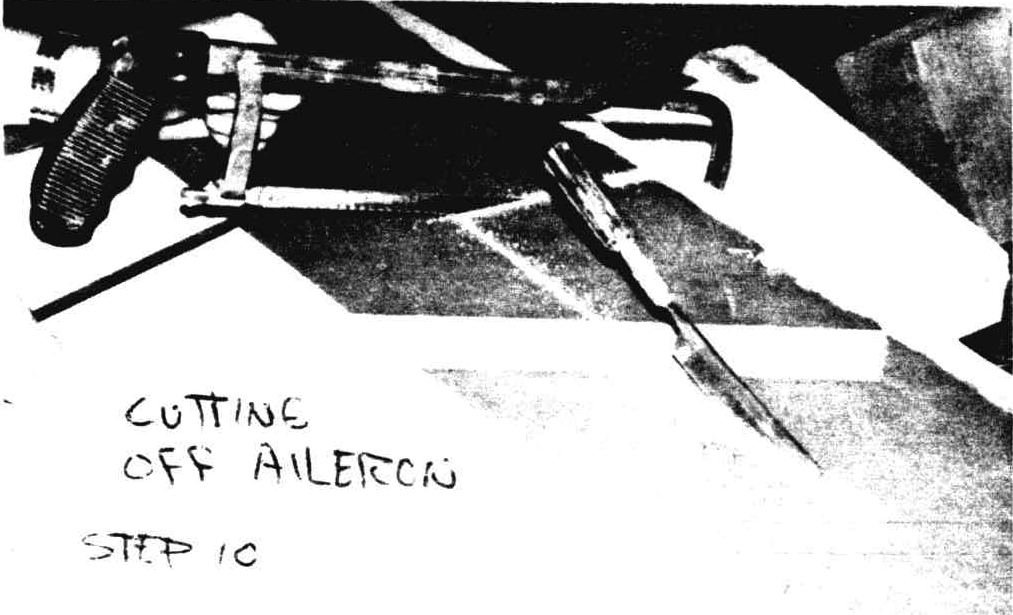 CUTTING
OFF AILERON
STEP 10